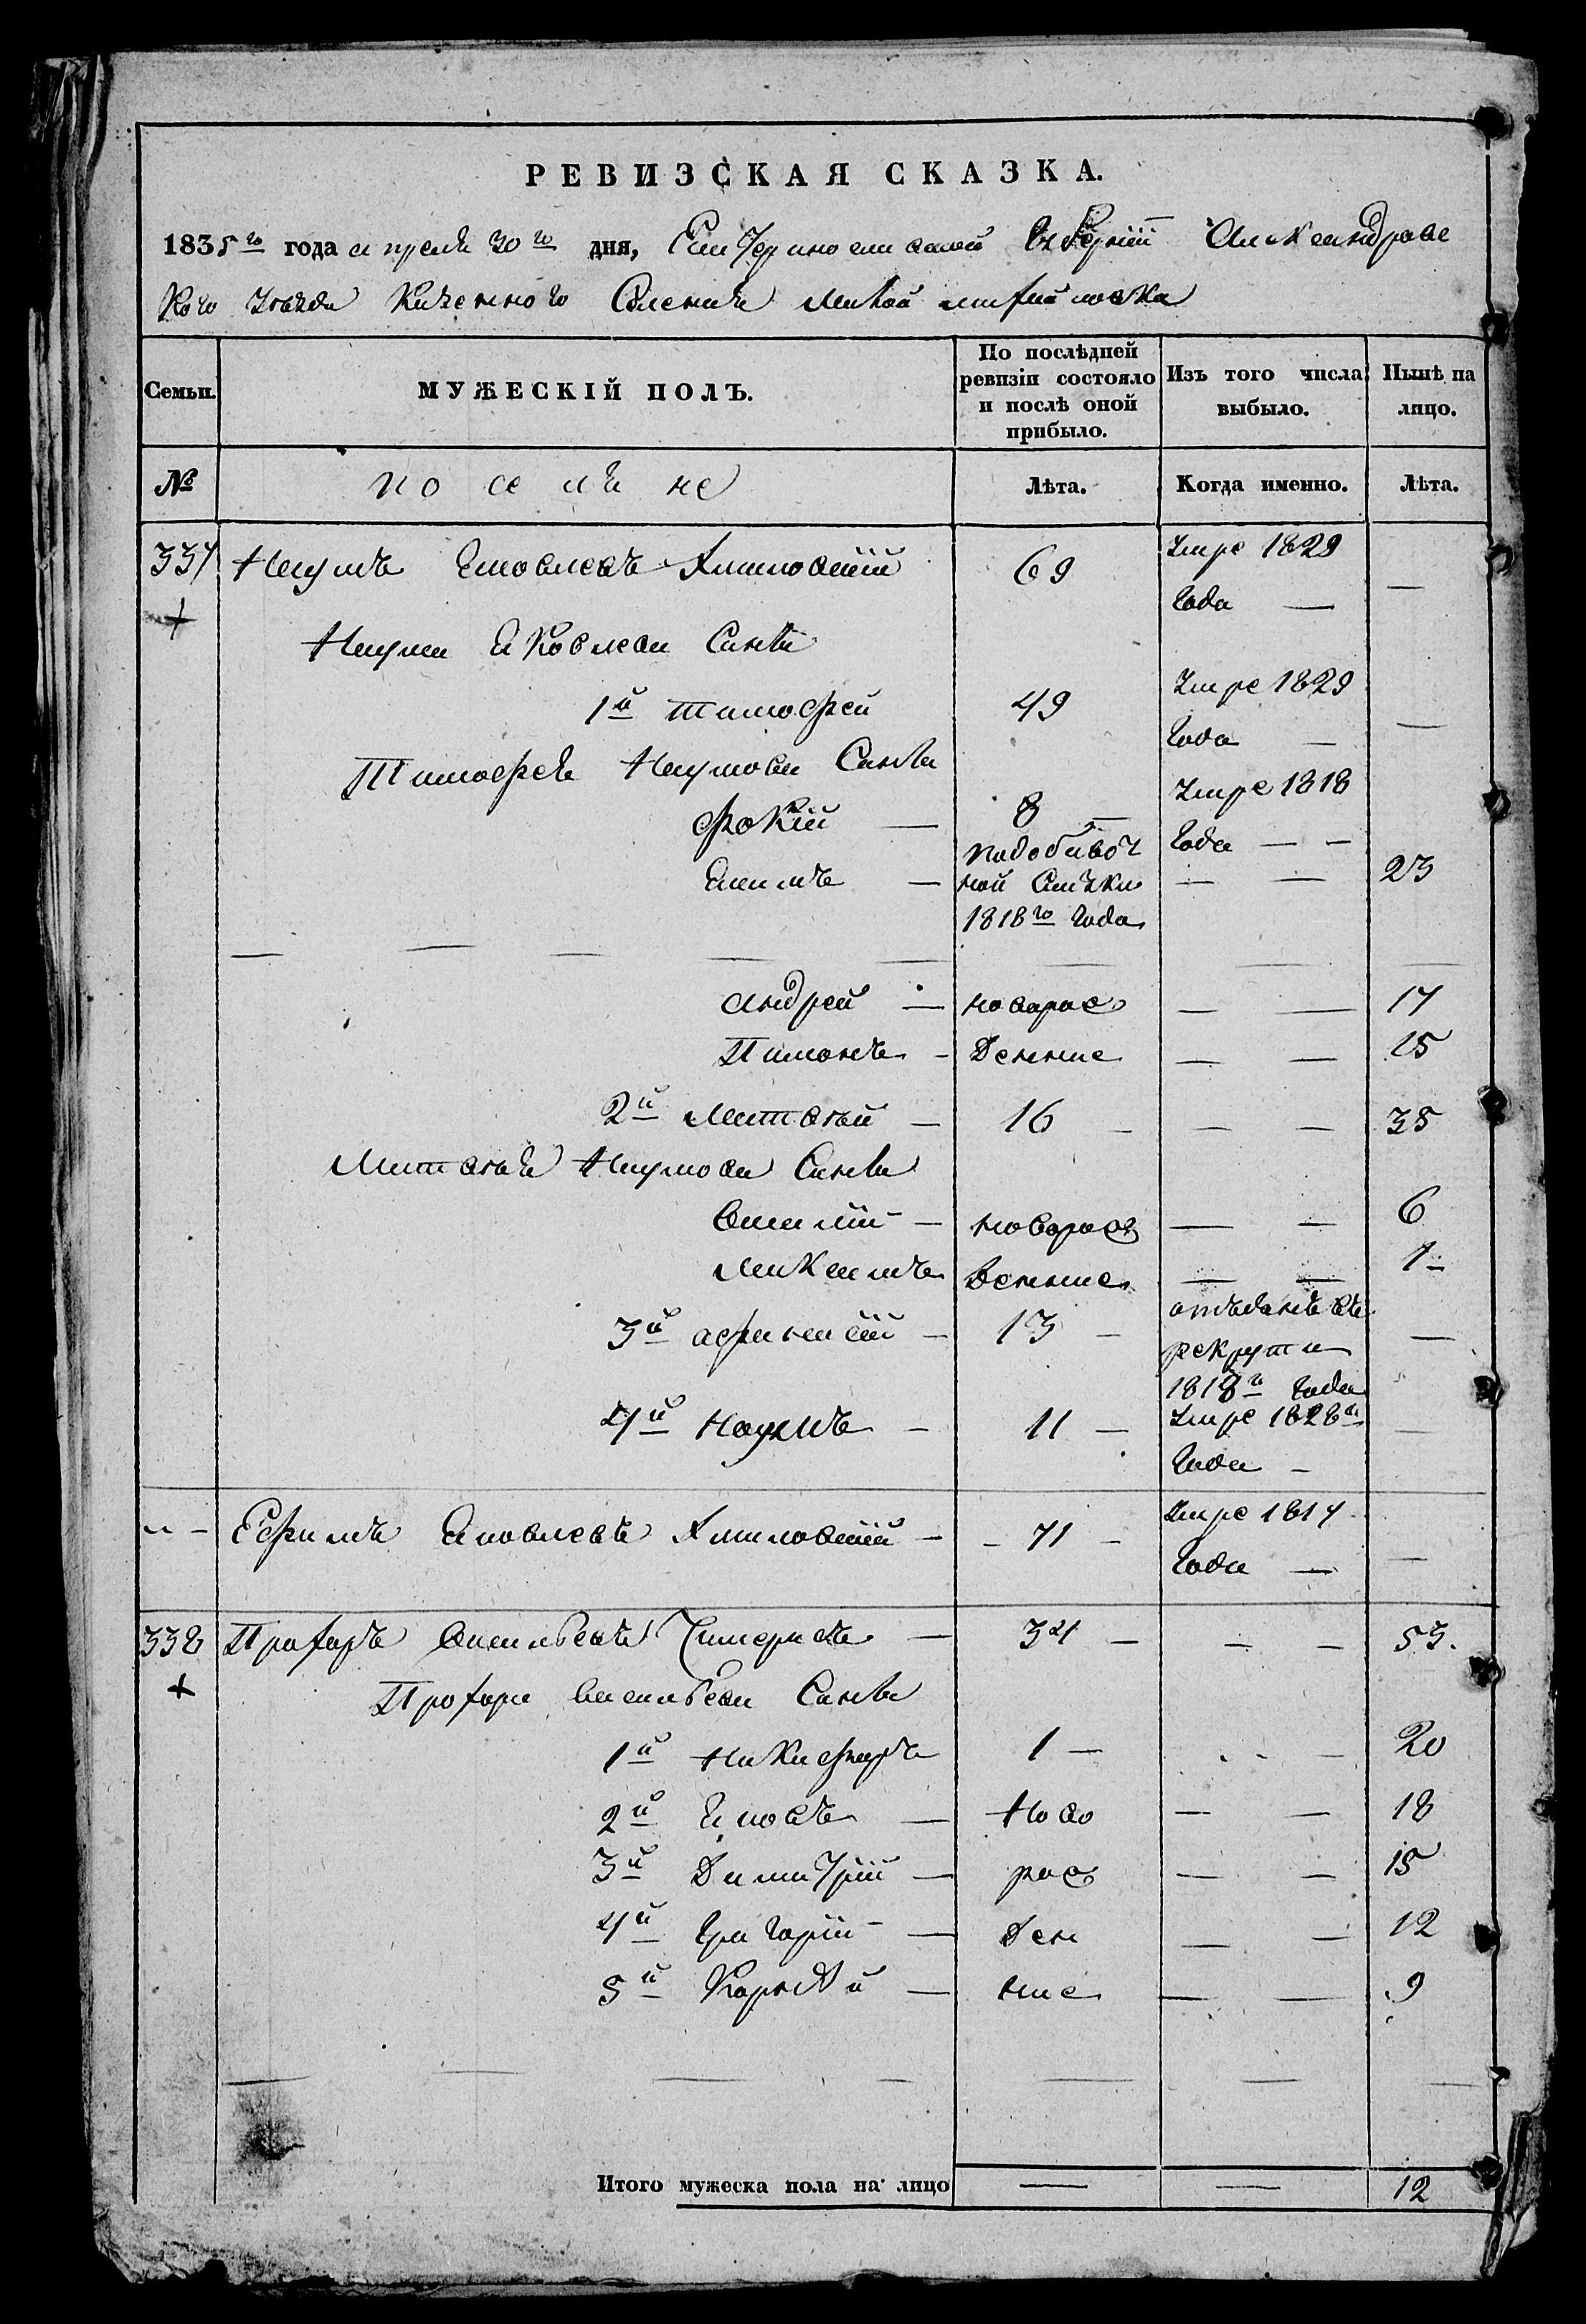 РЕВИЗСКАЯ СКАЗКА.
1835го года апреля 30го дня, Екатеринославской Губерніи Александровс
кого уезда Казенного Селенія Малой михайловки
Семьи. МУЖЕСКІЙ ПОЛЪ. По послѣдней ревизіи состояло и послѣ оной прибыло. Изъ того числа выбыло. Нынѣ на лицо.
№ поселяне Лѣта. Когда именно. Лѣта.
337 Наумъ Яковлевъ 69 Умре 1829
года —
Наума Яковлева Сынъ
1й тимофей 49 Умре 1829
года —
Тимофея Наумова Сынъ
фокій — 8 — Умре 1818
года — —
Якимъ — подобавоч
ной Сказки — — 23
1818го года
андрей — новорож — — 17
Пимонъ — денные — — 15
2й Матвѣй — 16 — — — 35
Матвѣя Наумова Сынъ
Василій — новорож — — 6
Максимъ денные — — 1
3й афанасій — 13 — отъданъ въ
рекруты —
1818го года
4й наумъ — 11 — Умре 1828го
года —
— Ефимъ Яковлевъ — 71 — Умре 1817
года — —
338 Прохоръ Васильевъ — 34 — — — 53.
Прохора Васильева Сынъ
1й Никифоръ 1 — — 20
2й Яковъ — Ново — — 18
3й Димитрій — рож — — 15
4й Григорій — ден — — 12
5й Корнѣй — ные — — 9
Итого мужеска пола на лицо — — 12